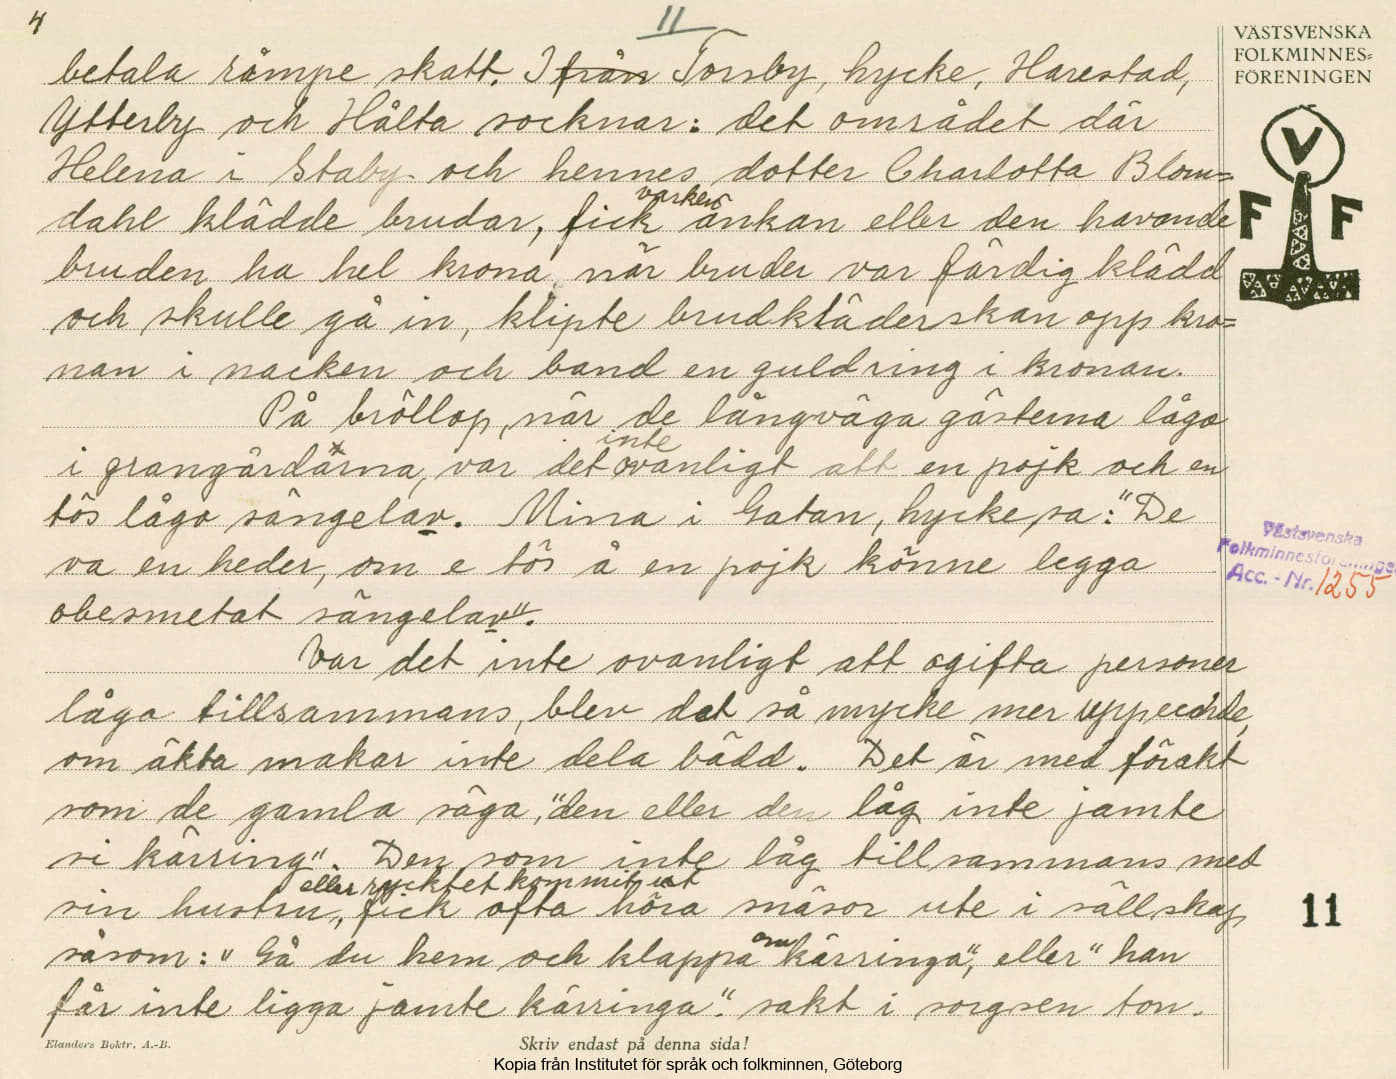 4
11
VÄSTSVENSKA
FOLKMINNES=
FÖRENINGEN
V
F F
betala råmpe skatt. I från Torsby, Lycke, Harestad,
Ytterby och Hålta socknar: det området där
Helena i Staby och hennes dotter Charlotta Blom=
dahl klädde brudar, fick varken änkan eller den havande
bruden ha hel krona, när bruder var färdig klädd
och skulle gå in, klipte brudkläderskan opp kro=
nan i nacken och band en guldring i kronan.
På bröllop, när de långväga gästerna lågo
i grangårdarna, var det inte ovanligt att en pojk och en
tös lågo sängelav. Mina i Gatan, Lycke, sa: "De
va en heder, om e tös å en pojk könne legga
obesmetat sängelav".
Var det inte ovanligt att ogifta personer
lågo tillsammans, blev det så mycke mer
om äkta makar inte dela bädd. Det är med förakt
som de gamla säga, "den eller den låg inte jamte
si kärring". Den som inte låg tillsammans med
sin hustru, eller rycktet kommit ut fick ofta höra snäsor ute i sällskap
såsom: "Gå du hem och klappa om kärringa", eller "han
får inte ligga jamte kärringa". sakt i sorgsen ton.
Västsvenska
Folkminnesföreningen
Acc. - Nr. 1255
11
Elanders Boktr. A.-B.
Skriv endast på denna sida!
Kopia från Institutet för språk och folkminnen, Göteborg